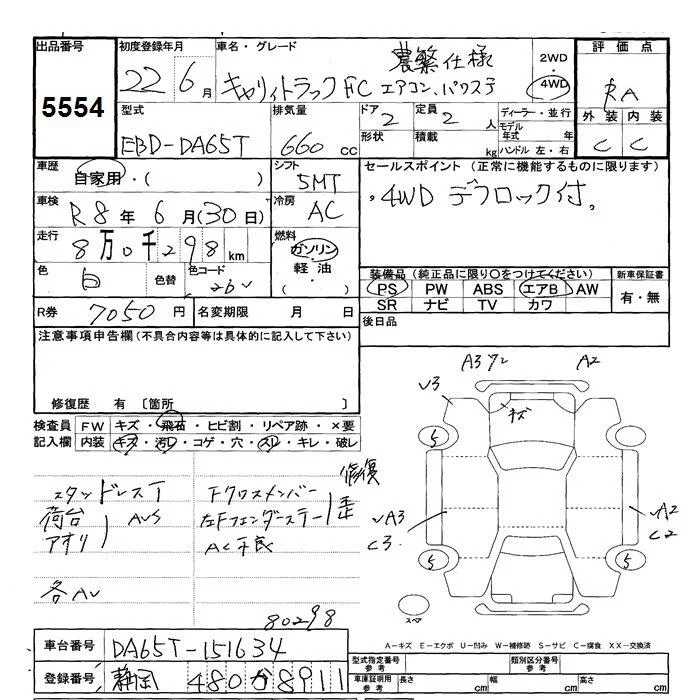 出品番号 初度登録年月 車名・グレード 評価点
5554
22年 6月 キャリイトラック FC エアコン、パワステ 農繁仕様
2WD・4WD
RA
型式 排気量 ドア 定員 ディーラー・並行 外装 内装
EBD-DA65T 660 cc 2 2 人 モデル年式 年 C C
形状 積載 kg ハンドル 左・右
車歴 シフト セールスポイント (正常に機能するものに限ります)
自家用・( ) 5MT
.4WD デフロック付。
車検 冷房
R8年 6月(30日) AC
走行 燃料
8万0千298km ガソリン・軽油・( )
色 色替 色コード 装備品 (純正品に限り○をつけてください) 新車保証書
白 26U PS PW ABS エアB AW 有・無
SR ナビ TV カワ
R券 7050円 名変期限 月 日 後日品
注意事項申告欄 (不具合内容等は具体的に記入して下さい)
修復歴 有 〔箇所 〕
検査員 FW キズ・飛石・ヒビ割・リペア跡・×要
記入欄 内装 キズ・汚レ・コゲ・穴・スレ・キレ・破レ
修復
スタッドレスT Fクロスメンバー
荷台 AUS 左Fフェンダーステー 歪
アオリ AC不良
各AU
80298
A3 A2
U3 キズ
5 5
UA3 UA2
C3 C2
5 5
スペア
A－キズ E－エクボ U－凹み W－補修跡 S－サビ C－腐食 XX－交換済
車台番号 DA65T-151634 型式指定番号 参考 類別区分番号 参考
登録番号 静岡 480 か 8911 車庫証明用 参考 長さ cm 幅 cm 高さ cm